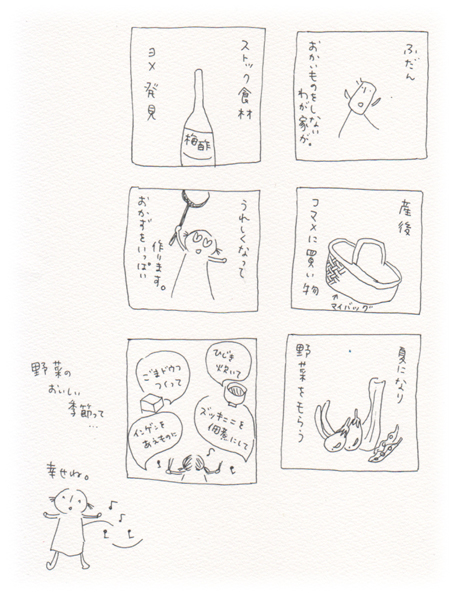 ふだん
おかいものをしない
わが家が。
産後
コマメに買い物
マイバッグ
夏になり
野菜をもらう
ストック食材
ヨメ発見
梅酢
うれしくなって
おかずをいっぱい
作ります。
ひじき
炊いて
ごまドウフ
つくって
ズッキーニを
佃煮にして
インゲンを
あえものに
野菜の
おいしい
季節って
…
幸せね。